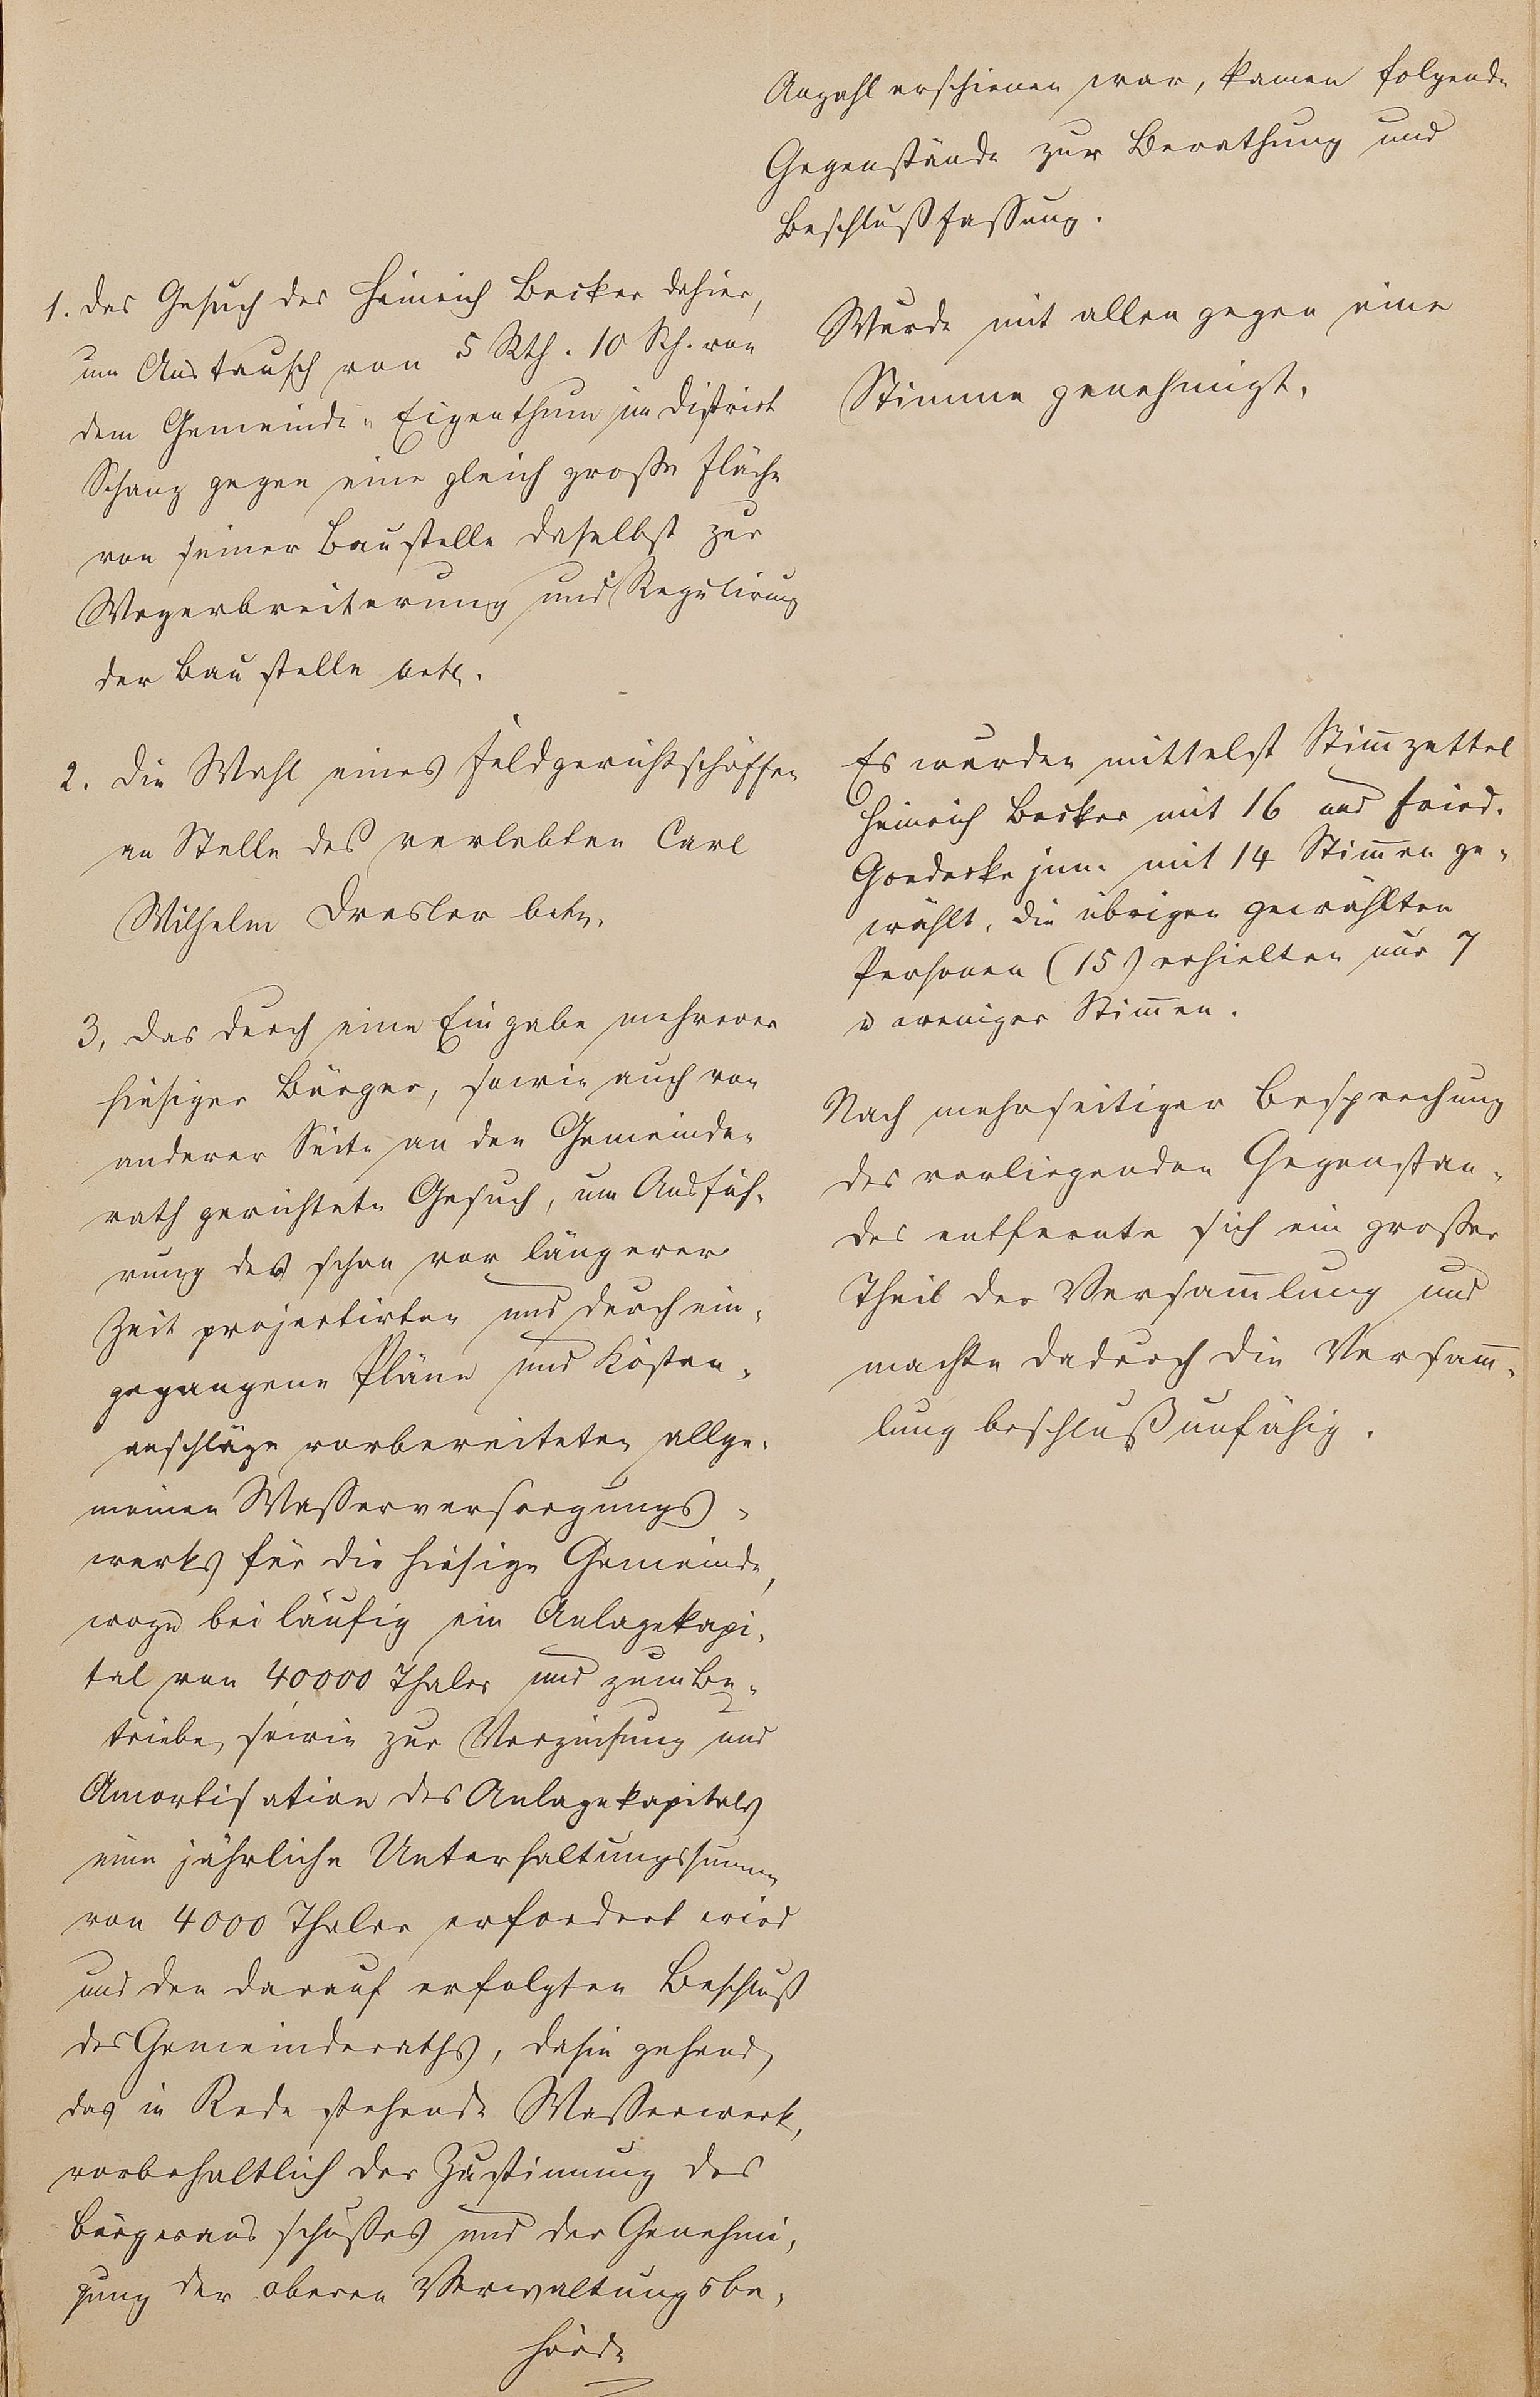 Anzahl erschienen war, kamen folgende
Gegenstände zur Berathung und
Beschlußfassung.
1. Das Gesuch des Heinrich Becker dahier,
um Austausch von 5 Rth. 10 Sch. von
dem Gemeinde-Eigenthum im District
Schanz gegen eine gleich große Fläche
von seiner Baustelle daselbst zur
Wegerbreiterung und Regulirung
der Baustelle betr.
Wurde mit allen gegen eine
Stimme genehmigt.
2. Die Wahl eines Feldgerichtschöffen
an Stelle des verlebten Carl
Wilhelm Dresler betr.
Es wurden mittelst Stim̄zettel
Heinrich Becker mit 16 und Fried.
Goedecke jun. mit 14 Stim̄en ge-
wählt, die übrigen gewählten
Personen (15) erhielten nur 7
u weniger Stim̄en.
3, Das durch eine Eingabe mehrerer
hiesiger Bürger, sowie auch von
anderer Seite an den Gemeinde-
rath gerichtete Gesuch, um Ausfüh-
rung des schon vor längerer
Zeit projectirten und durch ein-
gegangene Pläne und Kosten-
anschläge vorbereiteten allge-
meinen Wasserversorgungs-
werks für die hiesige Gemeinde,
wozu beiläufig ein Anlagekapi-
tal von 40000 Thaler und zum Be-
triebe, sowie zur Verzinsung und
Amortisation des Anlagekapitals
eine jährliche Unterhaltungssumme
von 4000 Thaler erfordert wird
und den darauf erfolgten Beschluß
des Gemeinderaths, dahin gehend,
das in Rede stehende Wasserwerk,
vorbehaltlich der Zustimmung des
Bürgerausschußes und der Genehmi-
gung der oberen Verwaltungsbe-
hörde
Nach mehrseitiger Besprechung
des vorliegenden Gegenstan-
des entfernte sich ein großer
Theil der Versam̄lung und
machte dadurch die Versam̄-
lung beschlußunfähig.